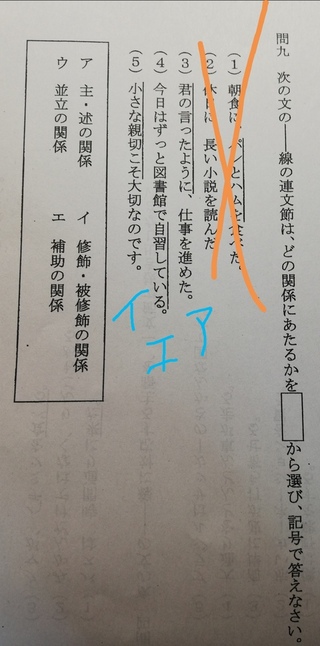 問九 次の文の――線の連文節は、どの関係にあたるかを から選び、記号で答えなさい。
(1) 朝食に、パンとハムを食べた。
(2) 休日に、長い小説を読んだ
(3) 君の言ったように、仕事を進めた。
(4) 今日はずっと図書館で自習している。
(5) 小さな親切こそ大切なのです。
ア
エ
イ
ア 主・述の関係 イ 修飾・被修飾の関係
ウ 並立の関係 エ 補助の関係